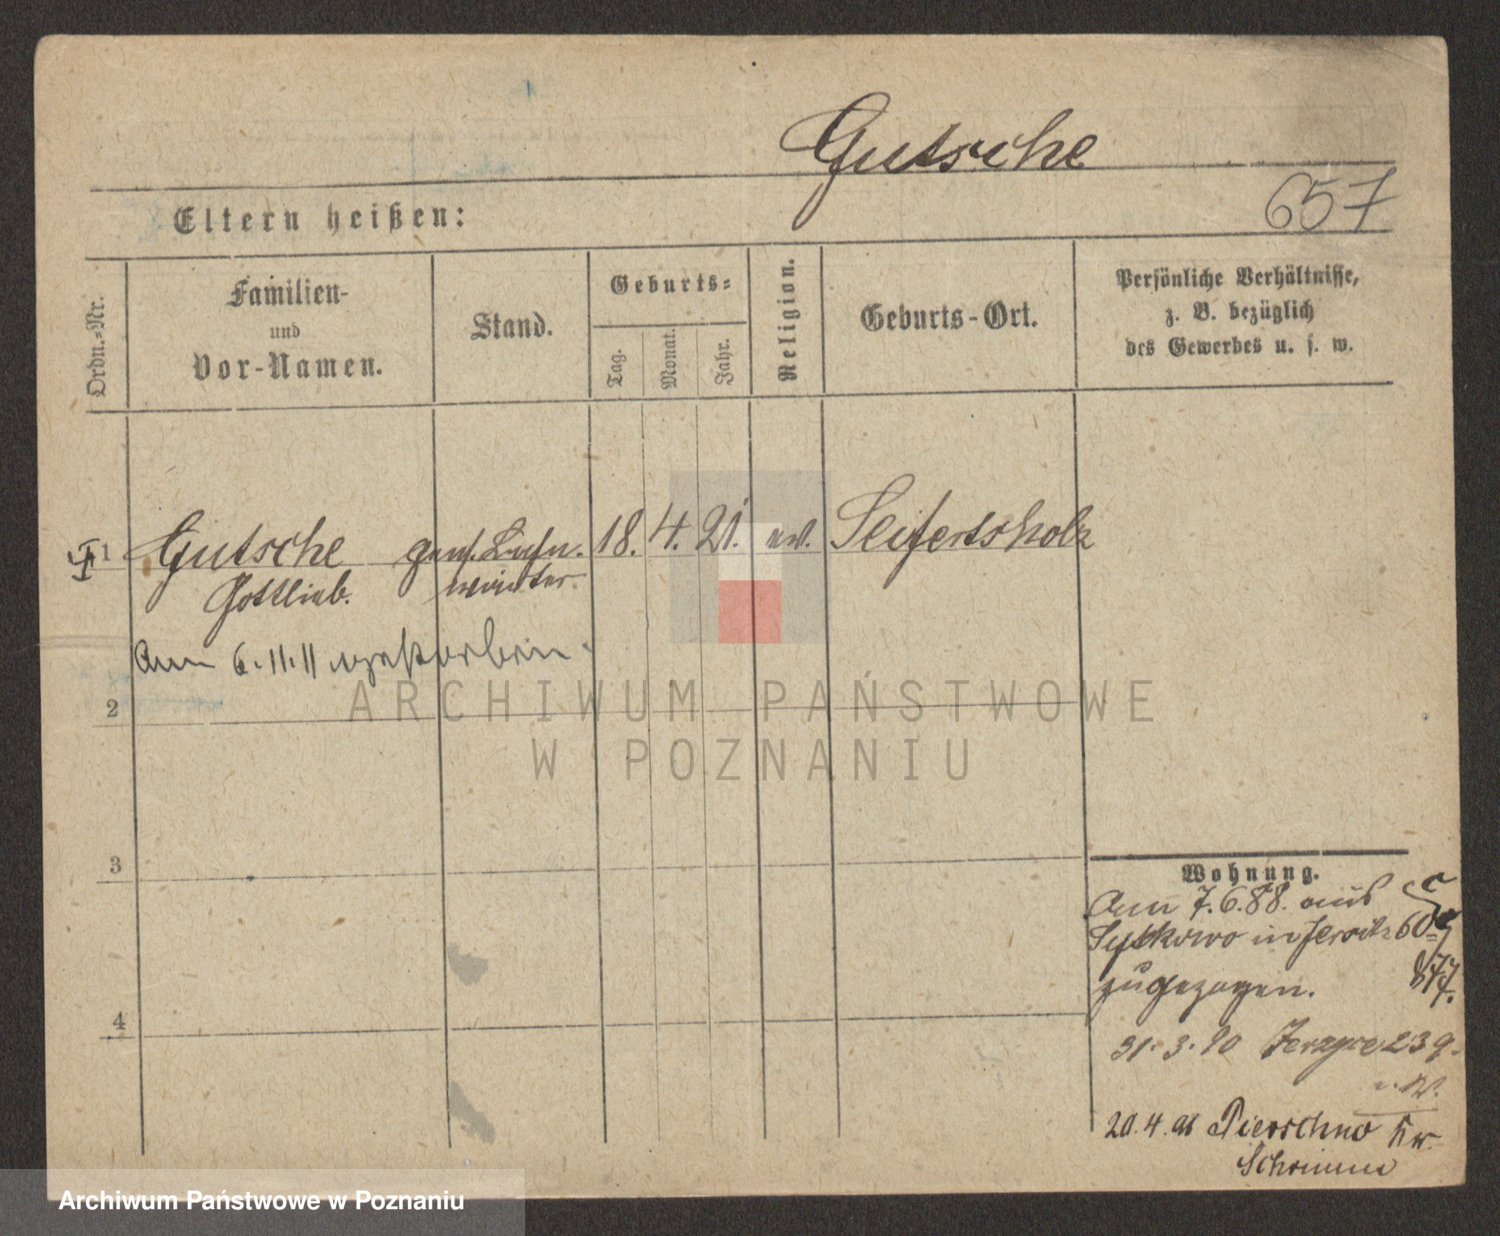 Gutsche
657
Eltern heißen:
Ordn.-Nr.
Familien-
und
Vor-Namen.
Stand.
Geburts-
Tag.
Monat.
Jahr.
Religion.
Geburts-Ort.
Persönliche Verhältnisse,
z. B. bezüglich
des Gewerbes u. s. w.
1 Gutsche 18. 4. 21. ev. Seifertsholz
Gottlieb. wärter.
Am 6.11.11 verstorben.
2
ARCHIWUM PAŃSTWOWE
W POZNANIU
3
4
Wohnung.
Am 7.6.88. aus
Sytkowo in Jersitz 60
zugezogen.
31.3.90 239
20.4. Pierschno Kr
Schrimm
Archiwum Państwowe w Poznaniu